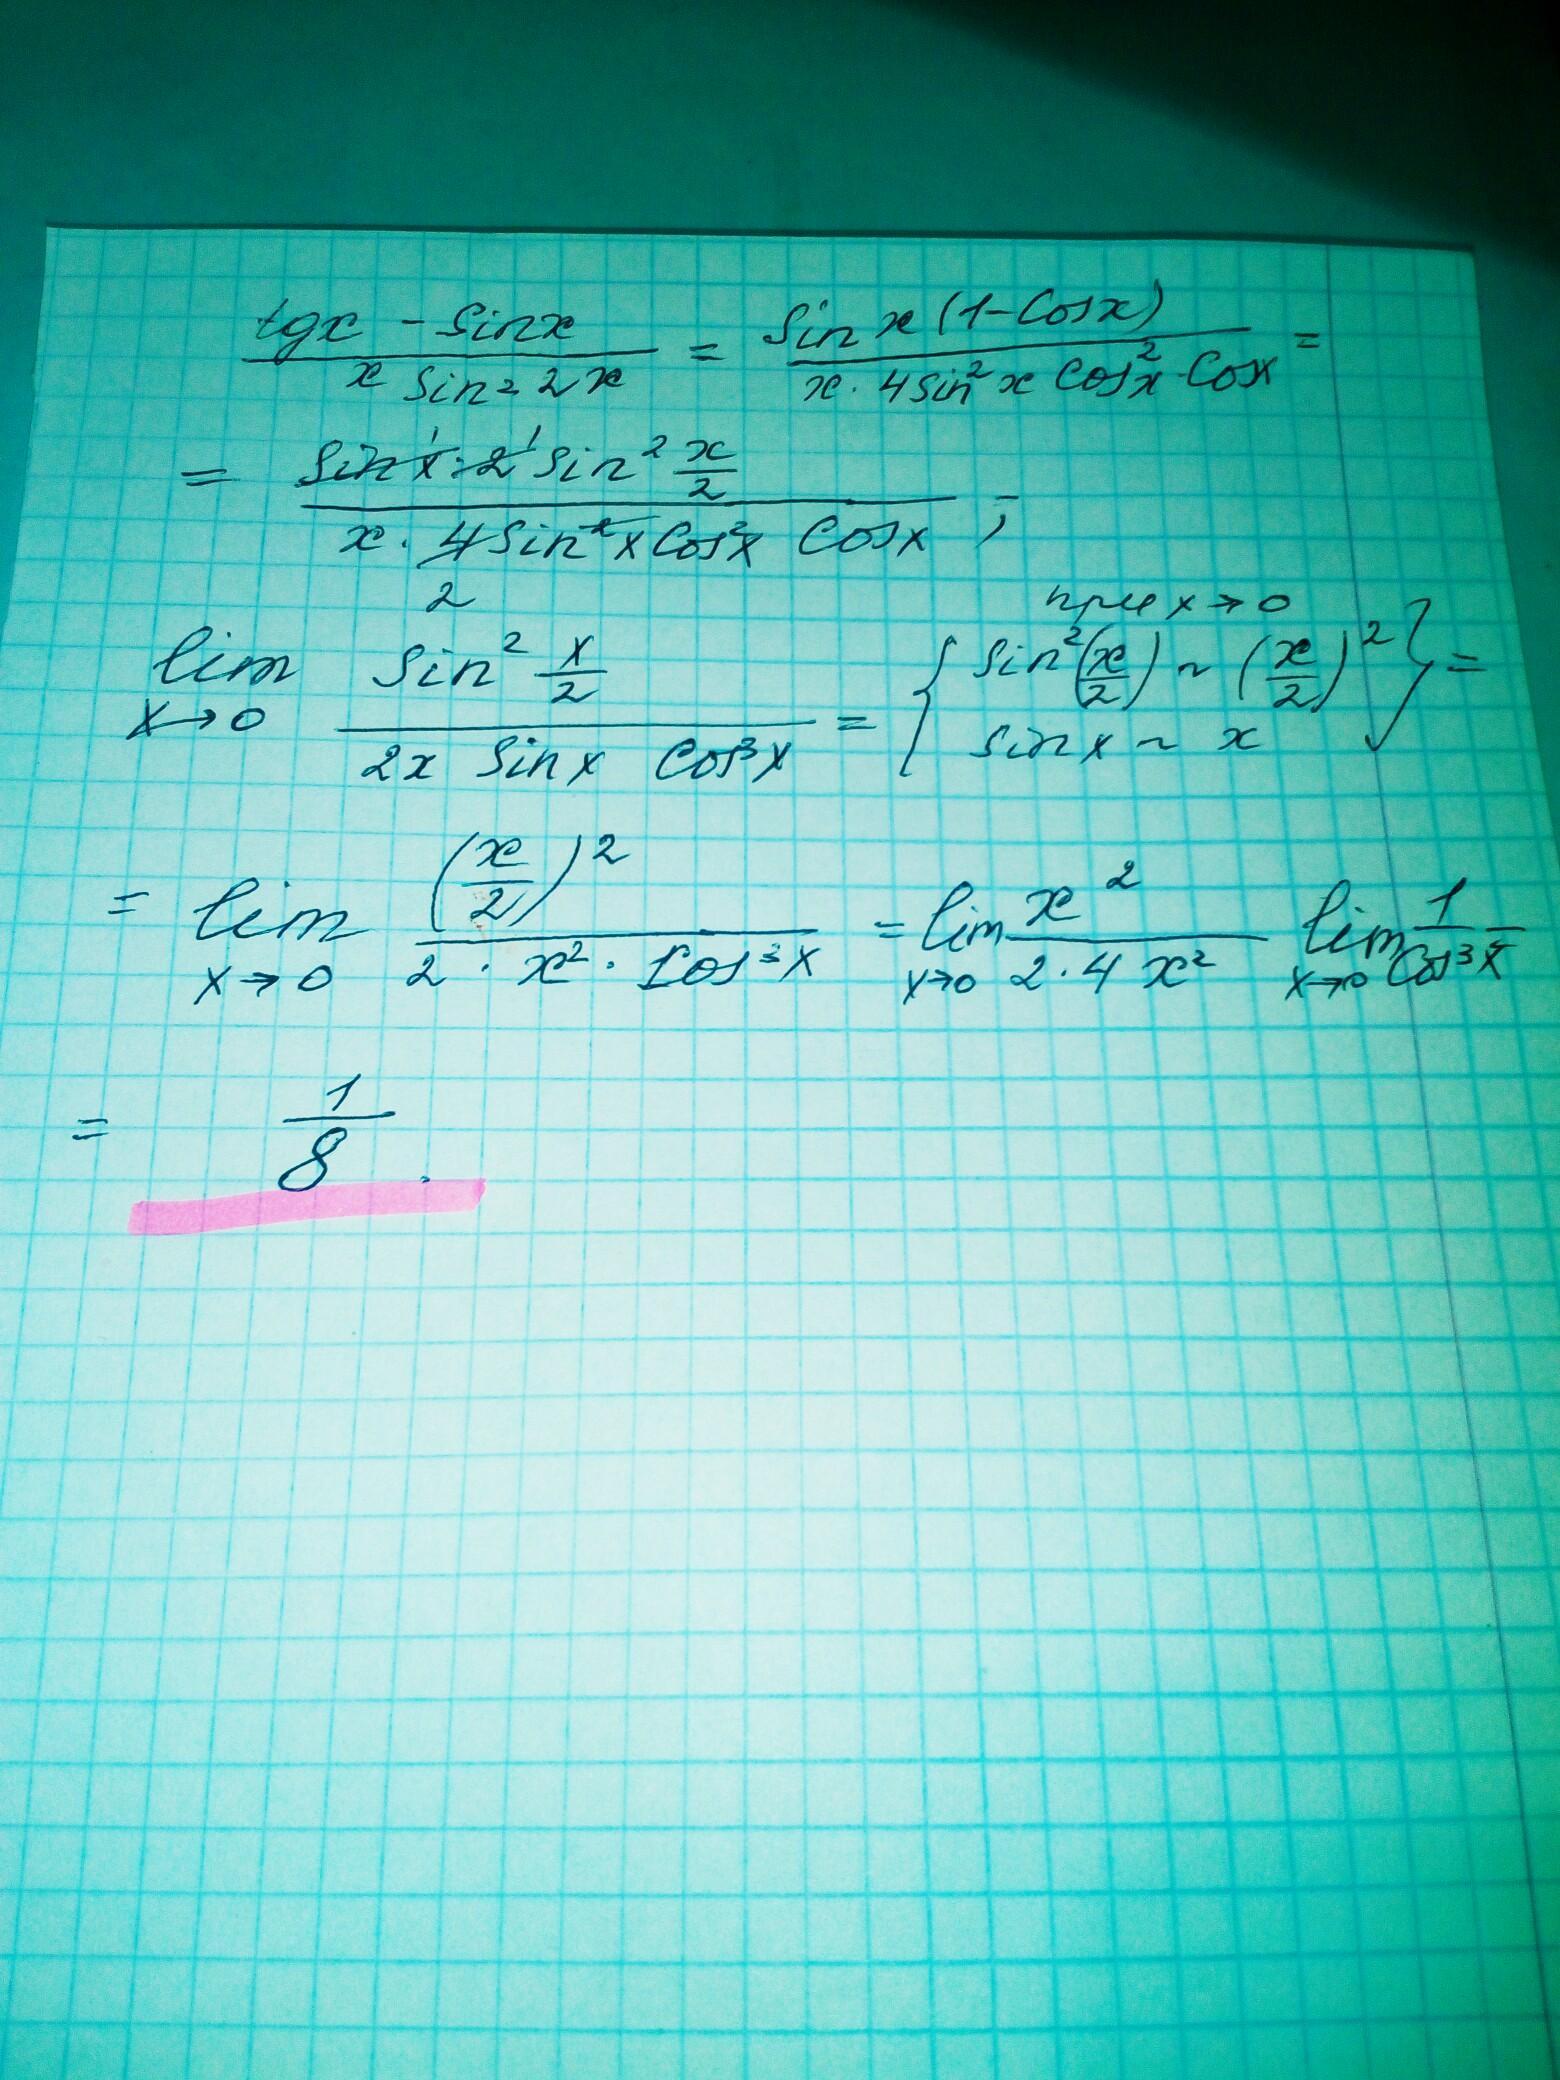 (tgx - sinx)/(x sin² 2x) = (sin x (1-cosx))/(x · 4sin² x cos² x · cosx) =
= (sin x · 2 sin² x/2)/(x · 4 sin² x cos² x cosx) ;
1 1
2
при x→0
lim x→0 (sin² x/2)/(2x sin x cos³x) = { sin²(x/2) ~ (x/2)² sin x ~ x } =
= lim x→0 ((x/2)²)/(2 · x² · cos³x) = lim x→0 x²/(2·4x²) lim x→0 1/cos³x =
= 1/8 .